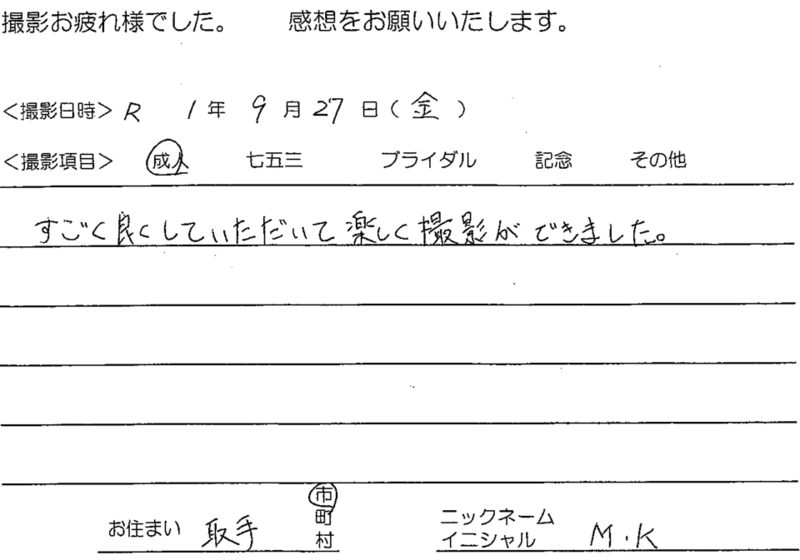 撮影お疲れ様でした。　感想をお願いいたします。
<撮影日時> R 1年 9月27日(金)
<撮影項目> 成人　七五三　ブライダル　記念　その他
すごく良くしていただいて楽しく撮影ができました。
お住まい 取手 市町村
ニックネーム イニシャル M.K